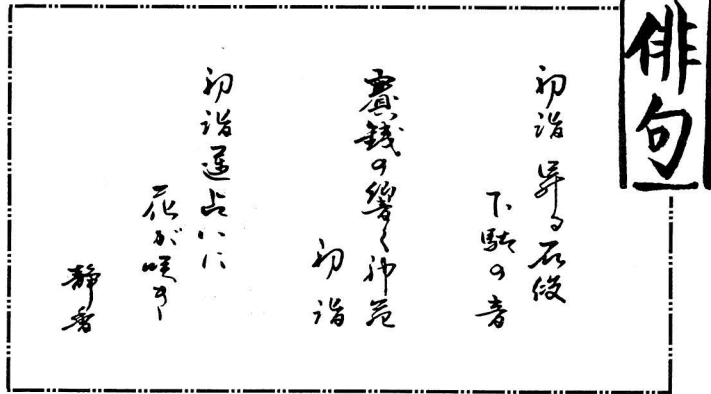 俳句
初詣昇る石段
下駄の音
賽銭の響く神苑
初詣
初詣運占いに
花が咲き
静香